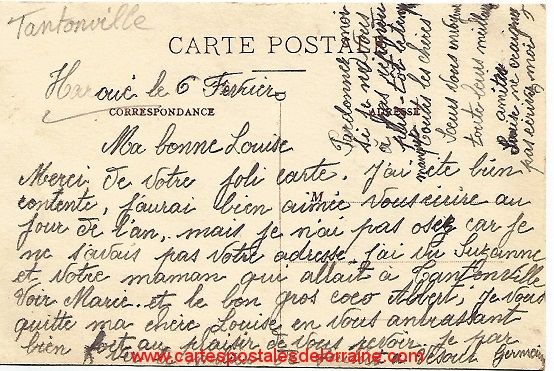 Tantonville
CARTE POSTALE
Haroué le 6 Février
CORRESPONDANCE
ADRESSE
Ma bonne Louise
Merci de votre joli carte. J'ai été bien
contente, j'aurai bien aimée vous écrire au
M
jour de l'an, mais je n'ai pas osez car je
ne s'avais pas votre adresse. j'ai vu Suzanne
et votre maman qui allait à Tantonville
voir Marie et le bon gros coco Albert, je vous
quitte ma chère Louise en vous embrassant
bien fort au plaisir de vous revoir. je par
à Vesoul Germaine
Pardonnez moi
si je ne vous
à pas
plus tot le temps
manque toutes les chères
Soeurs vous envoie
toute leurs meilleures
amitiés
ne craignez
pas écrives moi
www.cartespostalesdelorraine.com